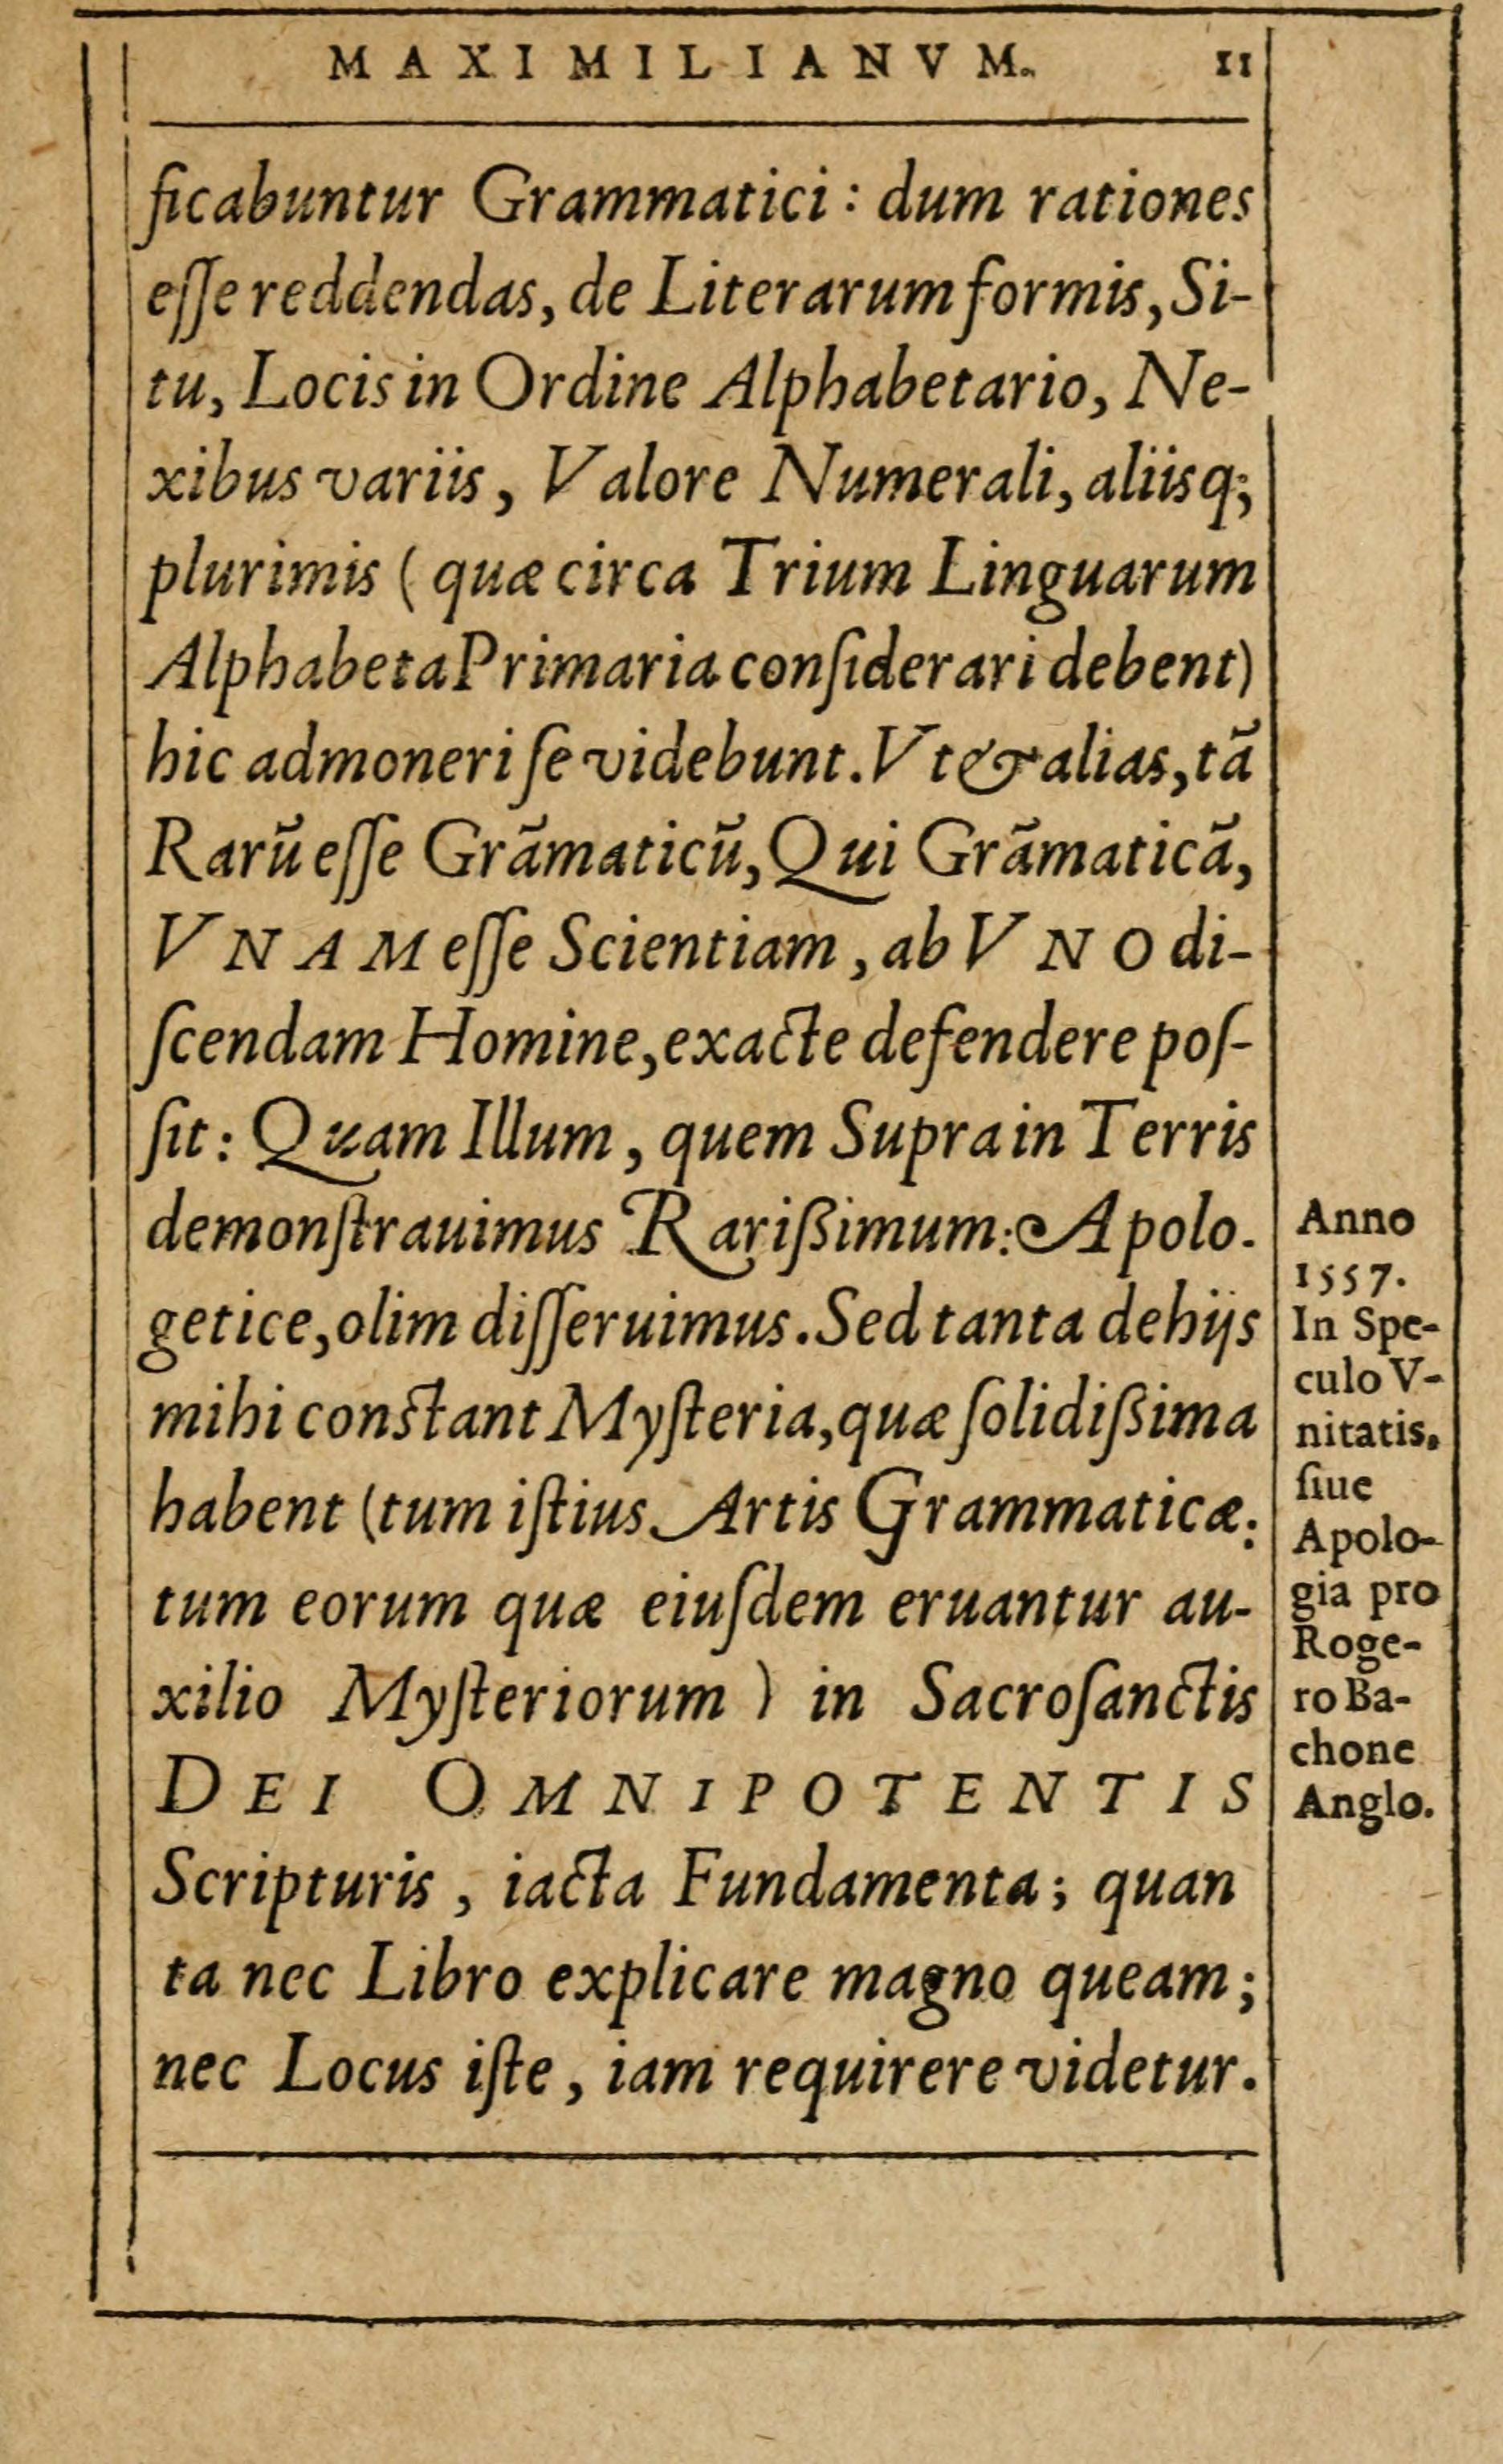 MAXIMILIANVM. 11
ficabuntur Grammatici: dum rationes
eſſe reddendas, de Literarum formis, Si-
tu, Locis in Ordine Alphabetario, Ne-
xibus variis, Valore Numerali, aliisq;
plurimis (quæ circa Trium Linguarum
Alphabeta Primaria conſiderari debent)
hic admoneri ſe videbunt. Vt & alias, tã
Rarũ eſſe Grãmaticũ, Qui Grãmaticã,
VNAM eſſe Scientiam, ab VNO di-
ſcendam Homine, exacte defendere poſ-
ſit: Quam Illum, quem Supra in Terris
demonſtrauimus Rarißimum: Apolo-
getice, olim diſſeruimus. Sed tanta de hijs
mihi constant Myſteria, quæ ſolidißima
habent (tum iſtius Artis Grammaticæ:
tum eorum quæ eiuſdem eruantur au-
xilio Myſteriorum) in Sacroſanctis
DEI OMNIPOTENTIS
Scripturis, iacta Fundamenta; quan
ta nec Libro explicare magno queam;
nec Locus iſte, iam requirere videtur.
Anno
1557.
In Spe-
culo V-
nitatis.
ſiue
Apolo-
gia pro
Roge-
ro Ba-
chone
Anglo.